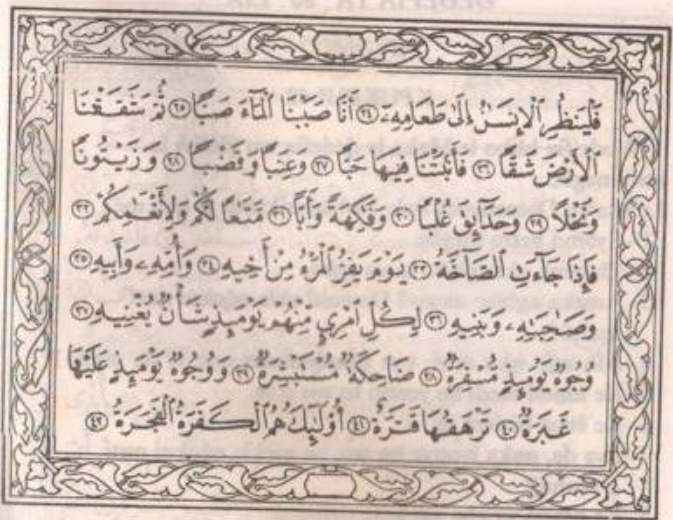 فَلْيَنظُرِ ٱلْإِنسَٰنُ إِلَىٰ طَعَامِهِۦٓ ٢٤ أَنَّا صَبَبْنَا ٱلْمَآءَ صَبًّا ٢٥ ثُمَّ شَقَقْنَا
ٱلْأَرْضَ شَقًّا ٢٦ فَأَنۢبَتْنَا فِيهَا حَبًّا ٢٧ وَعِنَبًا وَقَضْبًا ٢٨ وَزَيْتُونًا
وَنَخْلًا ٢٩ وَحَدَآئِقَ غُلْبًا ٣٠ وَفَٰكِهَةً وَأَبًّا ٣١ مَّتَٰعًا لَّكُمْ وَلِأَنْعَٰمِكُمْ ٣٢
فَإِذَا جَآءَتِ ٱلصَّآخَّةُ ٣٣ يَوْمَ يَفِرُّ ٱلْمَرْءُ مِنْ أَخِيهِ ٣٤ وَأُمِّهِۦ وَأَبِيهِ ٣٥
وَصَٰحِبَتِهِۦ وَبَنِيهِ ٣٦ لِكُلِّ ٱمْرِئٍ مِّنْهُمْ يَوْمَئِذٍ شَأْنٌ يُغْنِيهِ ٣٧
وُجُوهٌ يَوْمَئِذٍ مُّسْفِرَةٌ ٣٨ ضَاحِكَةٌ مُّسْتَبْشِرَةٌ ٣٩ وَوُجُوهٌ يَوْمَئِذٍ عَلَيْهَا
غَبَرَةٌ ٤٠ تَرْهَقُهَا قَتَرَةٌ ٤١ أُو۟لَٰٓئِكَ هُمُ ٱلْكَفَرَةُ ٱلْفَجَرَةُ ٤٢